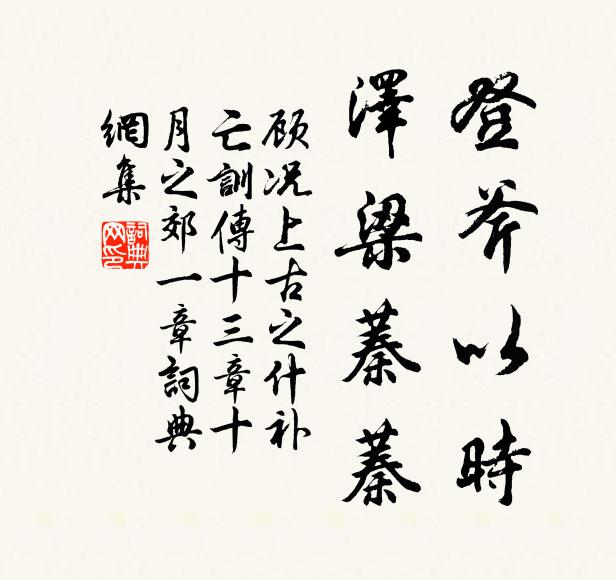 登斧以時
澤梁蓁蓁
顾况上古之什补
亡訓傳十三章十
月之郊一章詞典
網集
詞典
网印